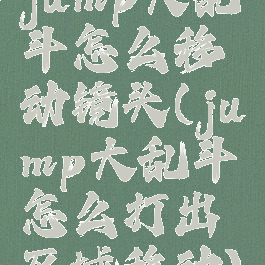 jump大乱
斗怎么移
动镜头(ju
mp大乱斗
怎么打出